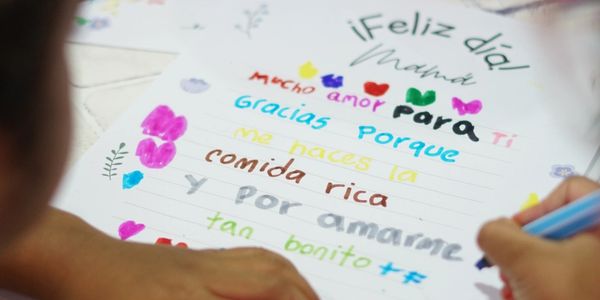 ¡Feliz día!
Mamá
mucho amor para ti
Gracias Porque
me haces la
comida rica
y por amarme
tan bonito